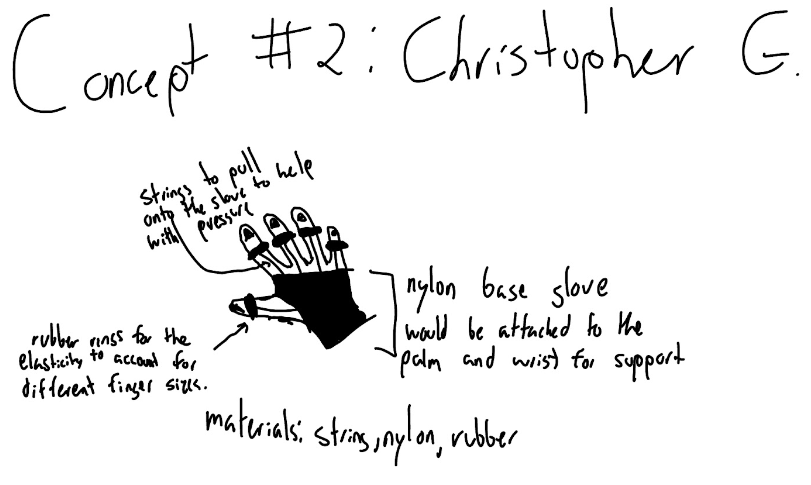 Concept #2: Christopher G.
strings to pull
onto the glove to help
with pressure
nylon base glove
would be attached to the
palm and wrist for support
rubber rings for the
elasticity to account for
different finger sizes.
materials: string, nylon, rubber